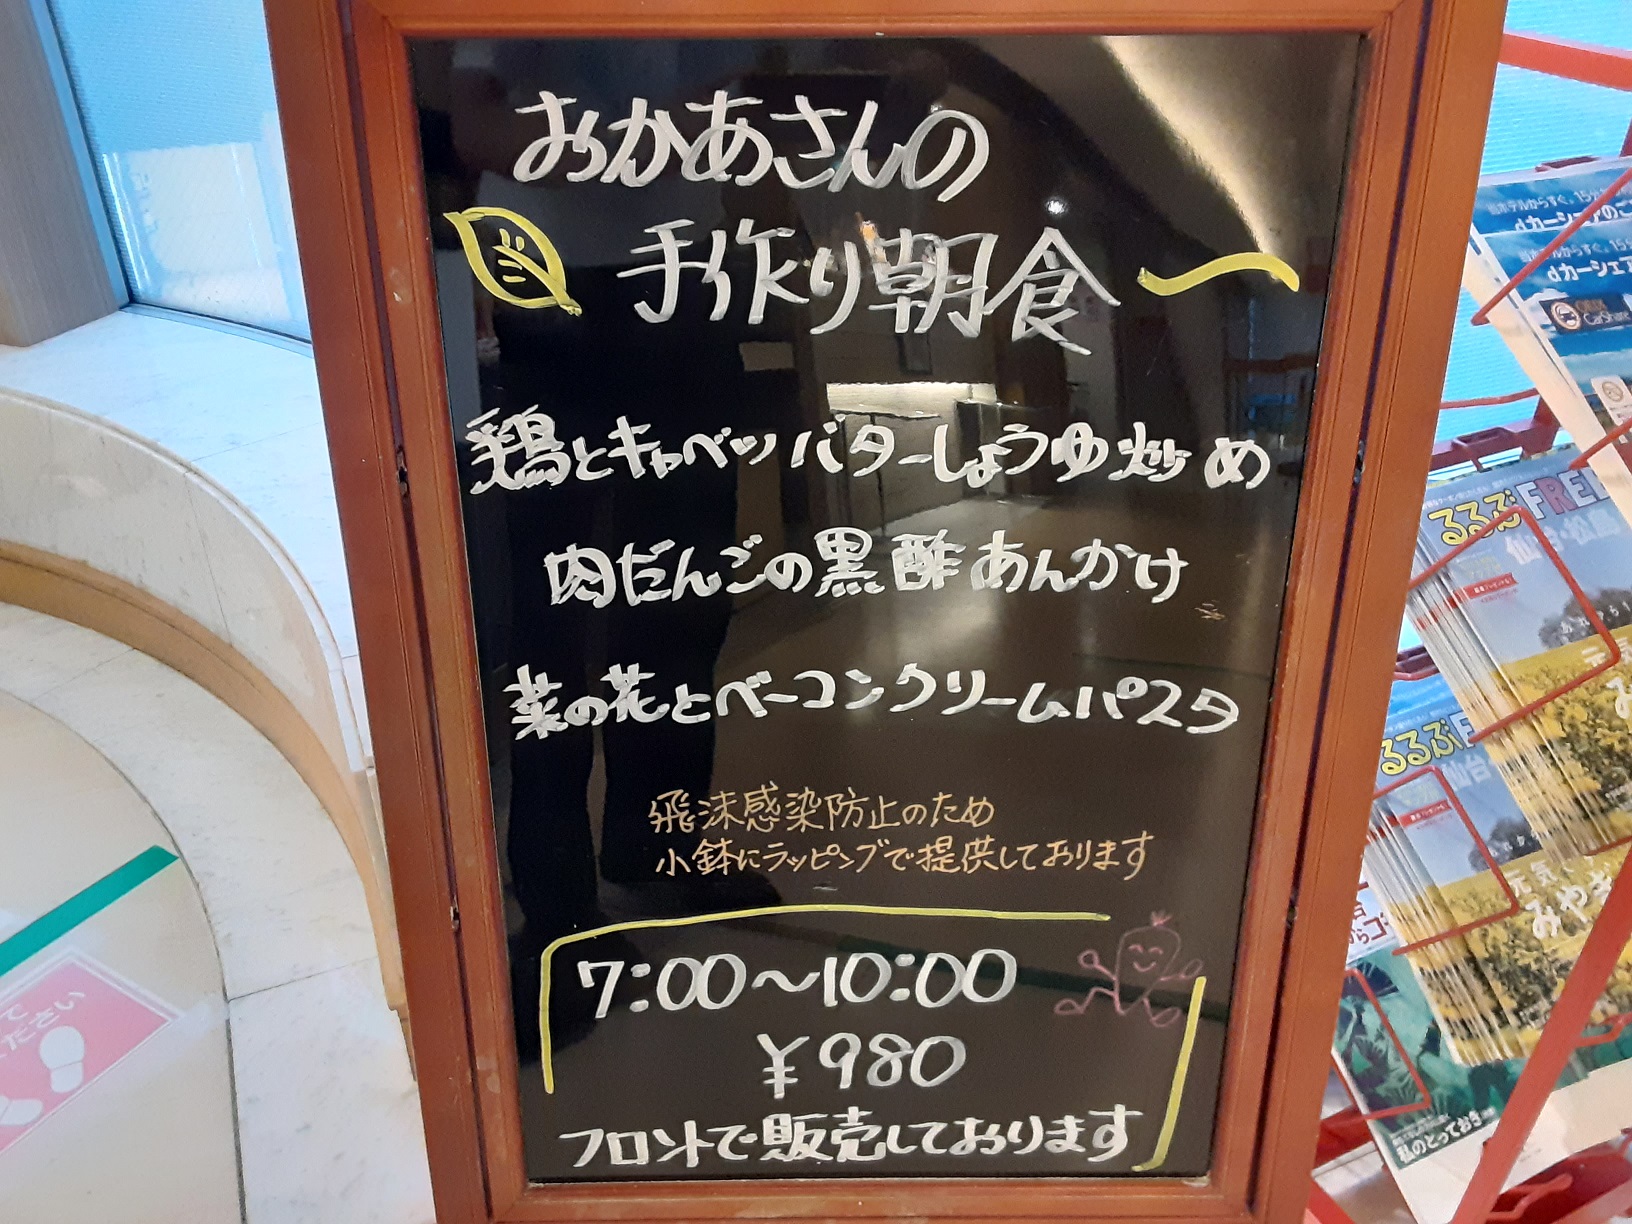 おかあさんの
手作り朝食
鶏とキャベツバターしょうゆ炒め
肉だんごの黒酢あんかけ
菜の花とベーコンクリームパスタ
飛沫感染防止のため
小鉢にラッピングで提供しております
7:00～10:00
¥980
フロントで販売しております
dカーシェア
CarShare
るるぶFREE
るるぶ
仙台
元気
みやぎ
私のとっておき